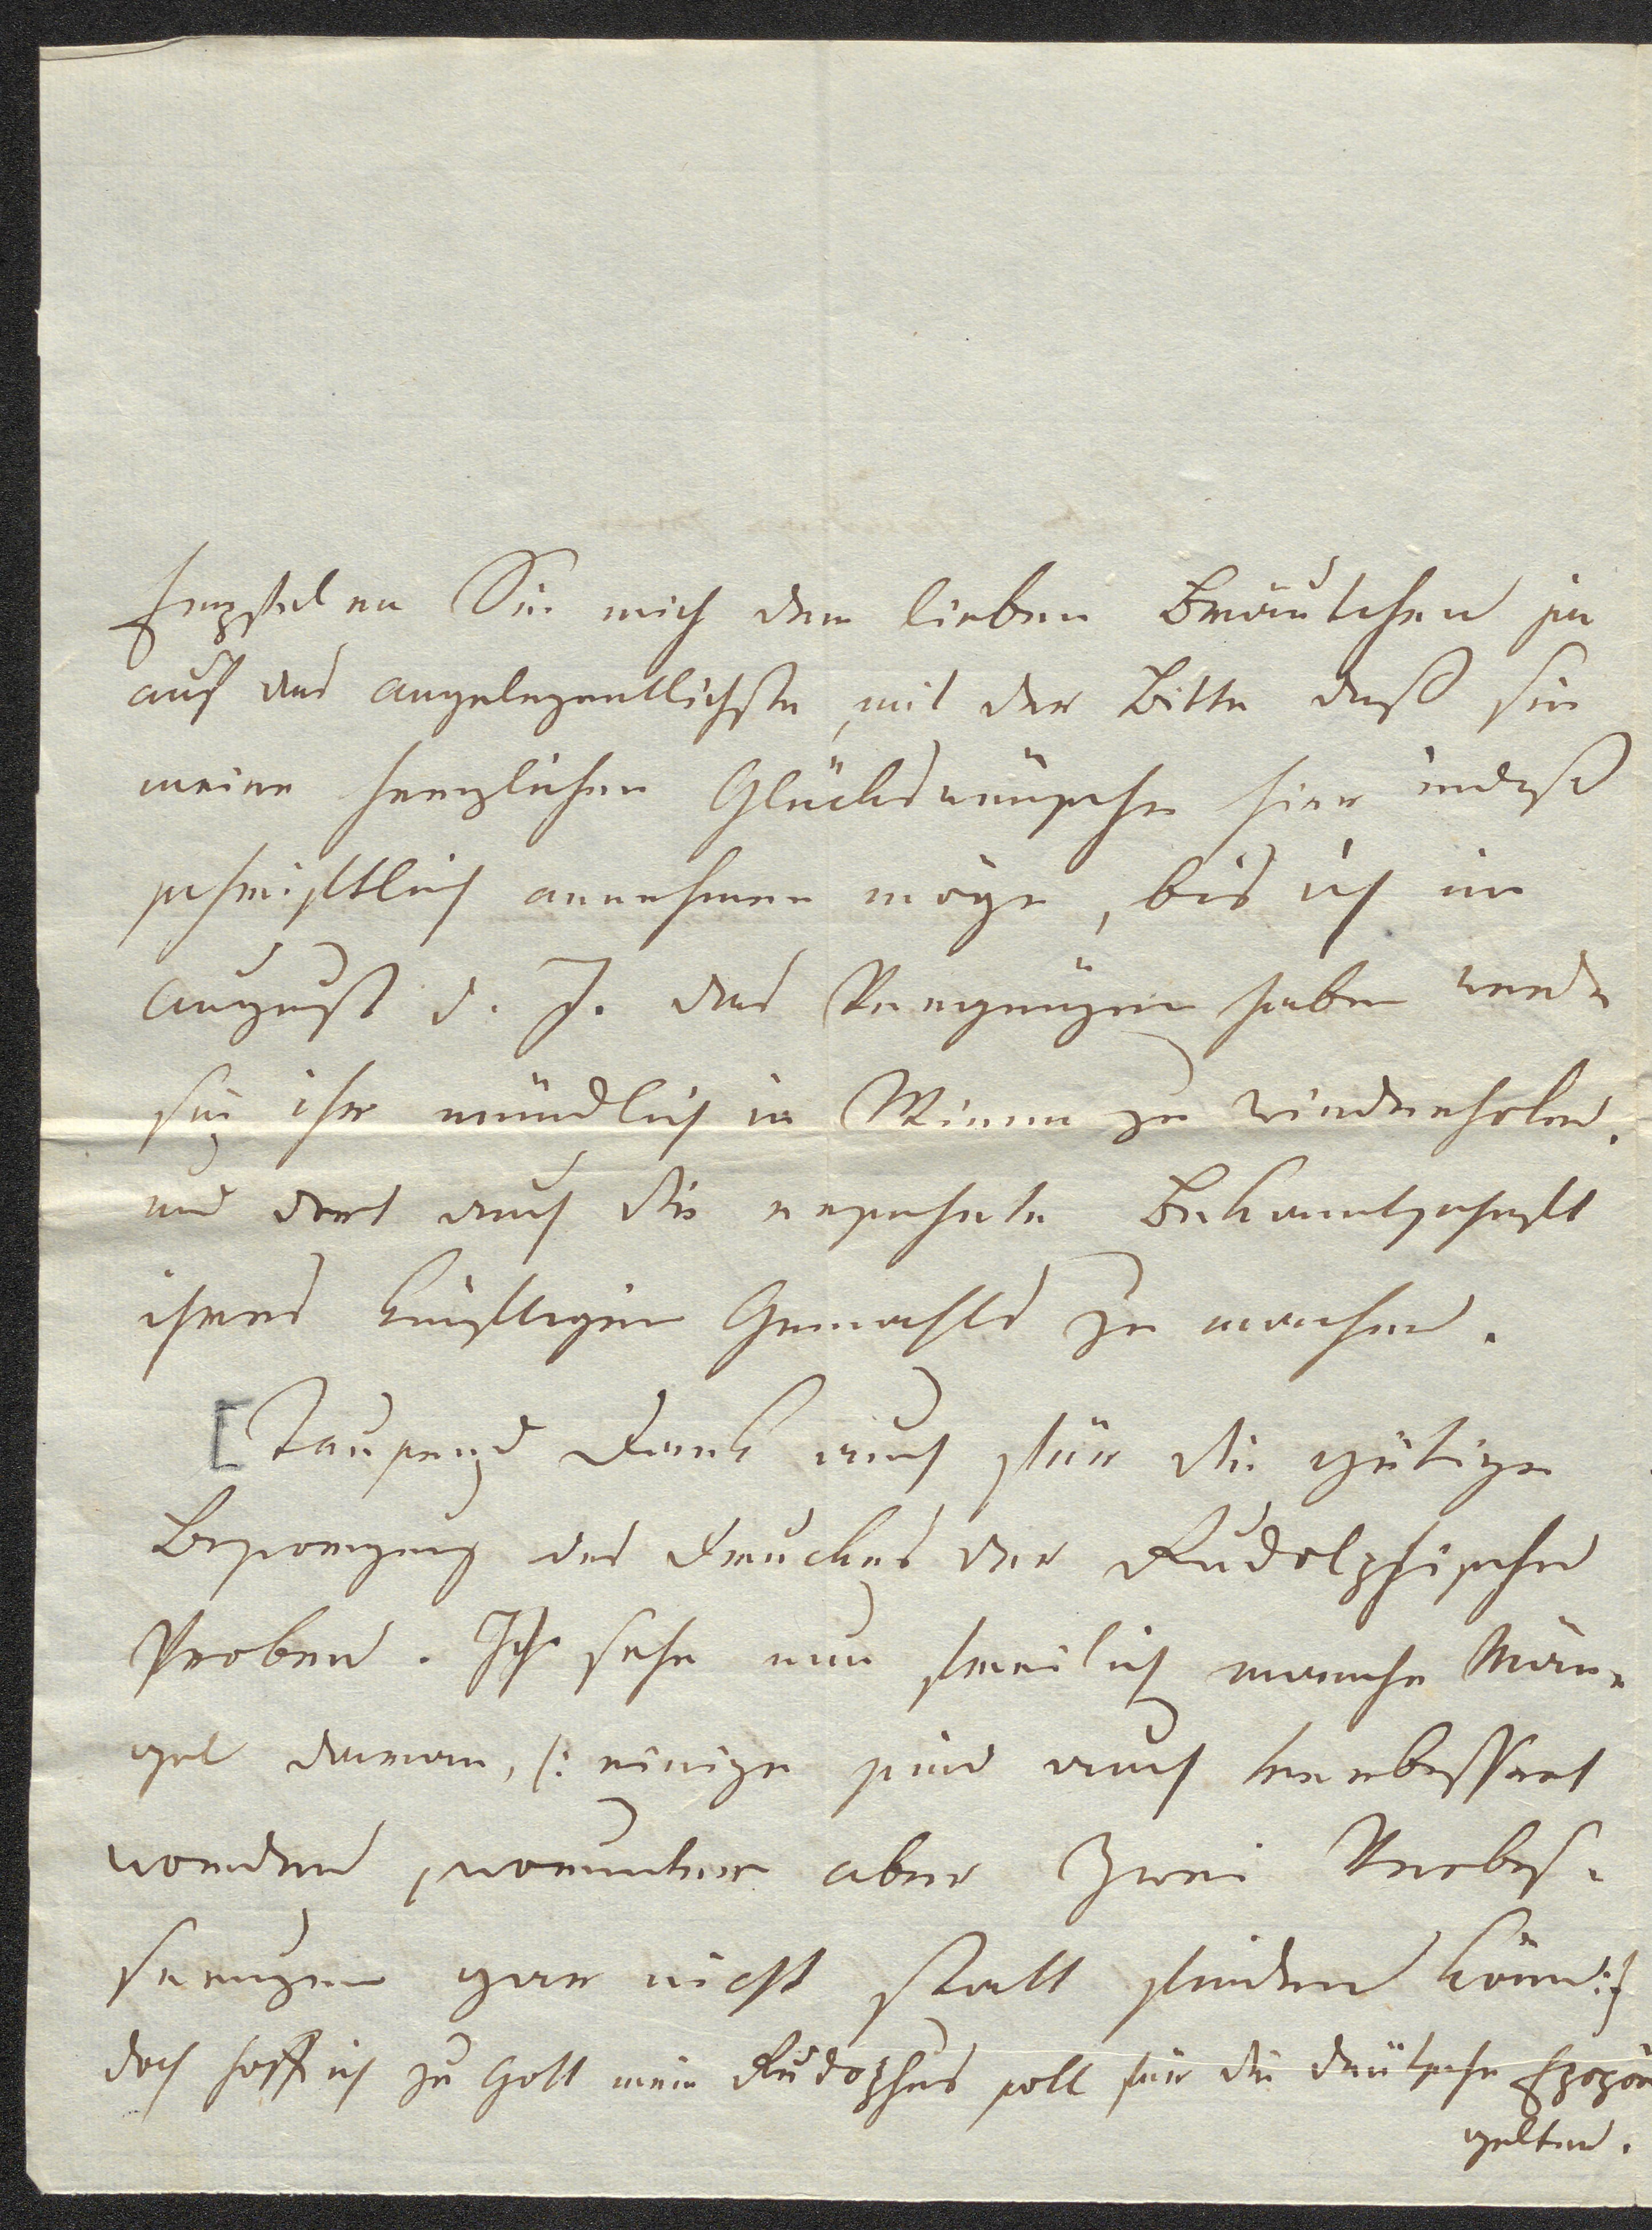 Empfehlen Sie mich dem lieben Bräutchen ja
auf das angelegentlichste, mit der Bitte daß sie
meine herzlichen Glückswünsche hier indeß
schriftlich annehmen möge, bis ich im
August d. J. das Vergnügen haben werde
sie ihr mündlich in Wien zu wiederhohlen.
und dort auch die ersehnte Bekanntschaft
ihres künftigen Gemahls zu machen.
[Tausend Dank auch für die gütige
Besorgung des Druckes der Rudolphischen
Proben. Ich sehe nun freilich manche Män-
gel daran, (: einige sind auch verbessert
worden, worunter aber zwei Verbes-
serungen gar nicht statt finden könn:)
doch hoff ich zu Gott mein Rudophus soll für die deutsche Epopöe
gelten.